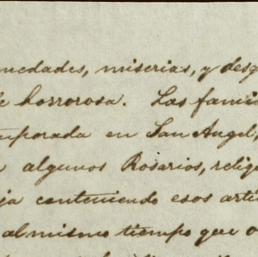 medades, miserias, y desg
e horrorosa. Las fami
mporada en San Angel,
algunos Rosarios, relig
ja conteniendo esos artí
al mismo tiempo que o